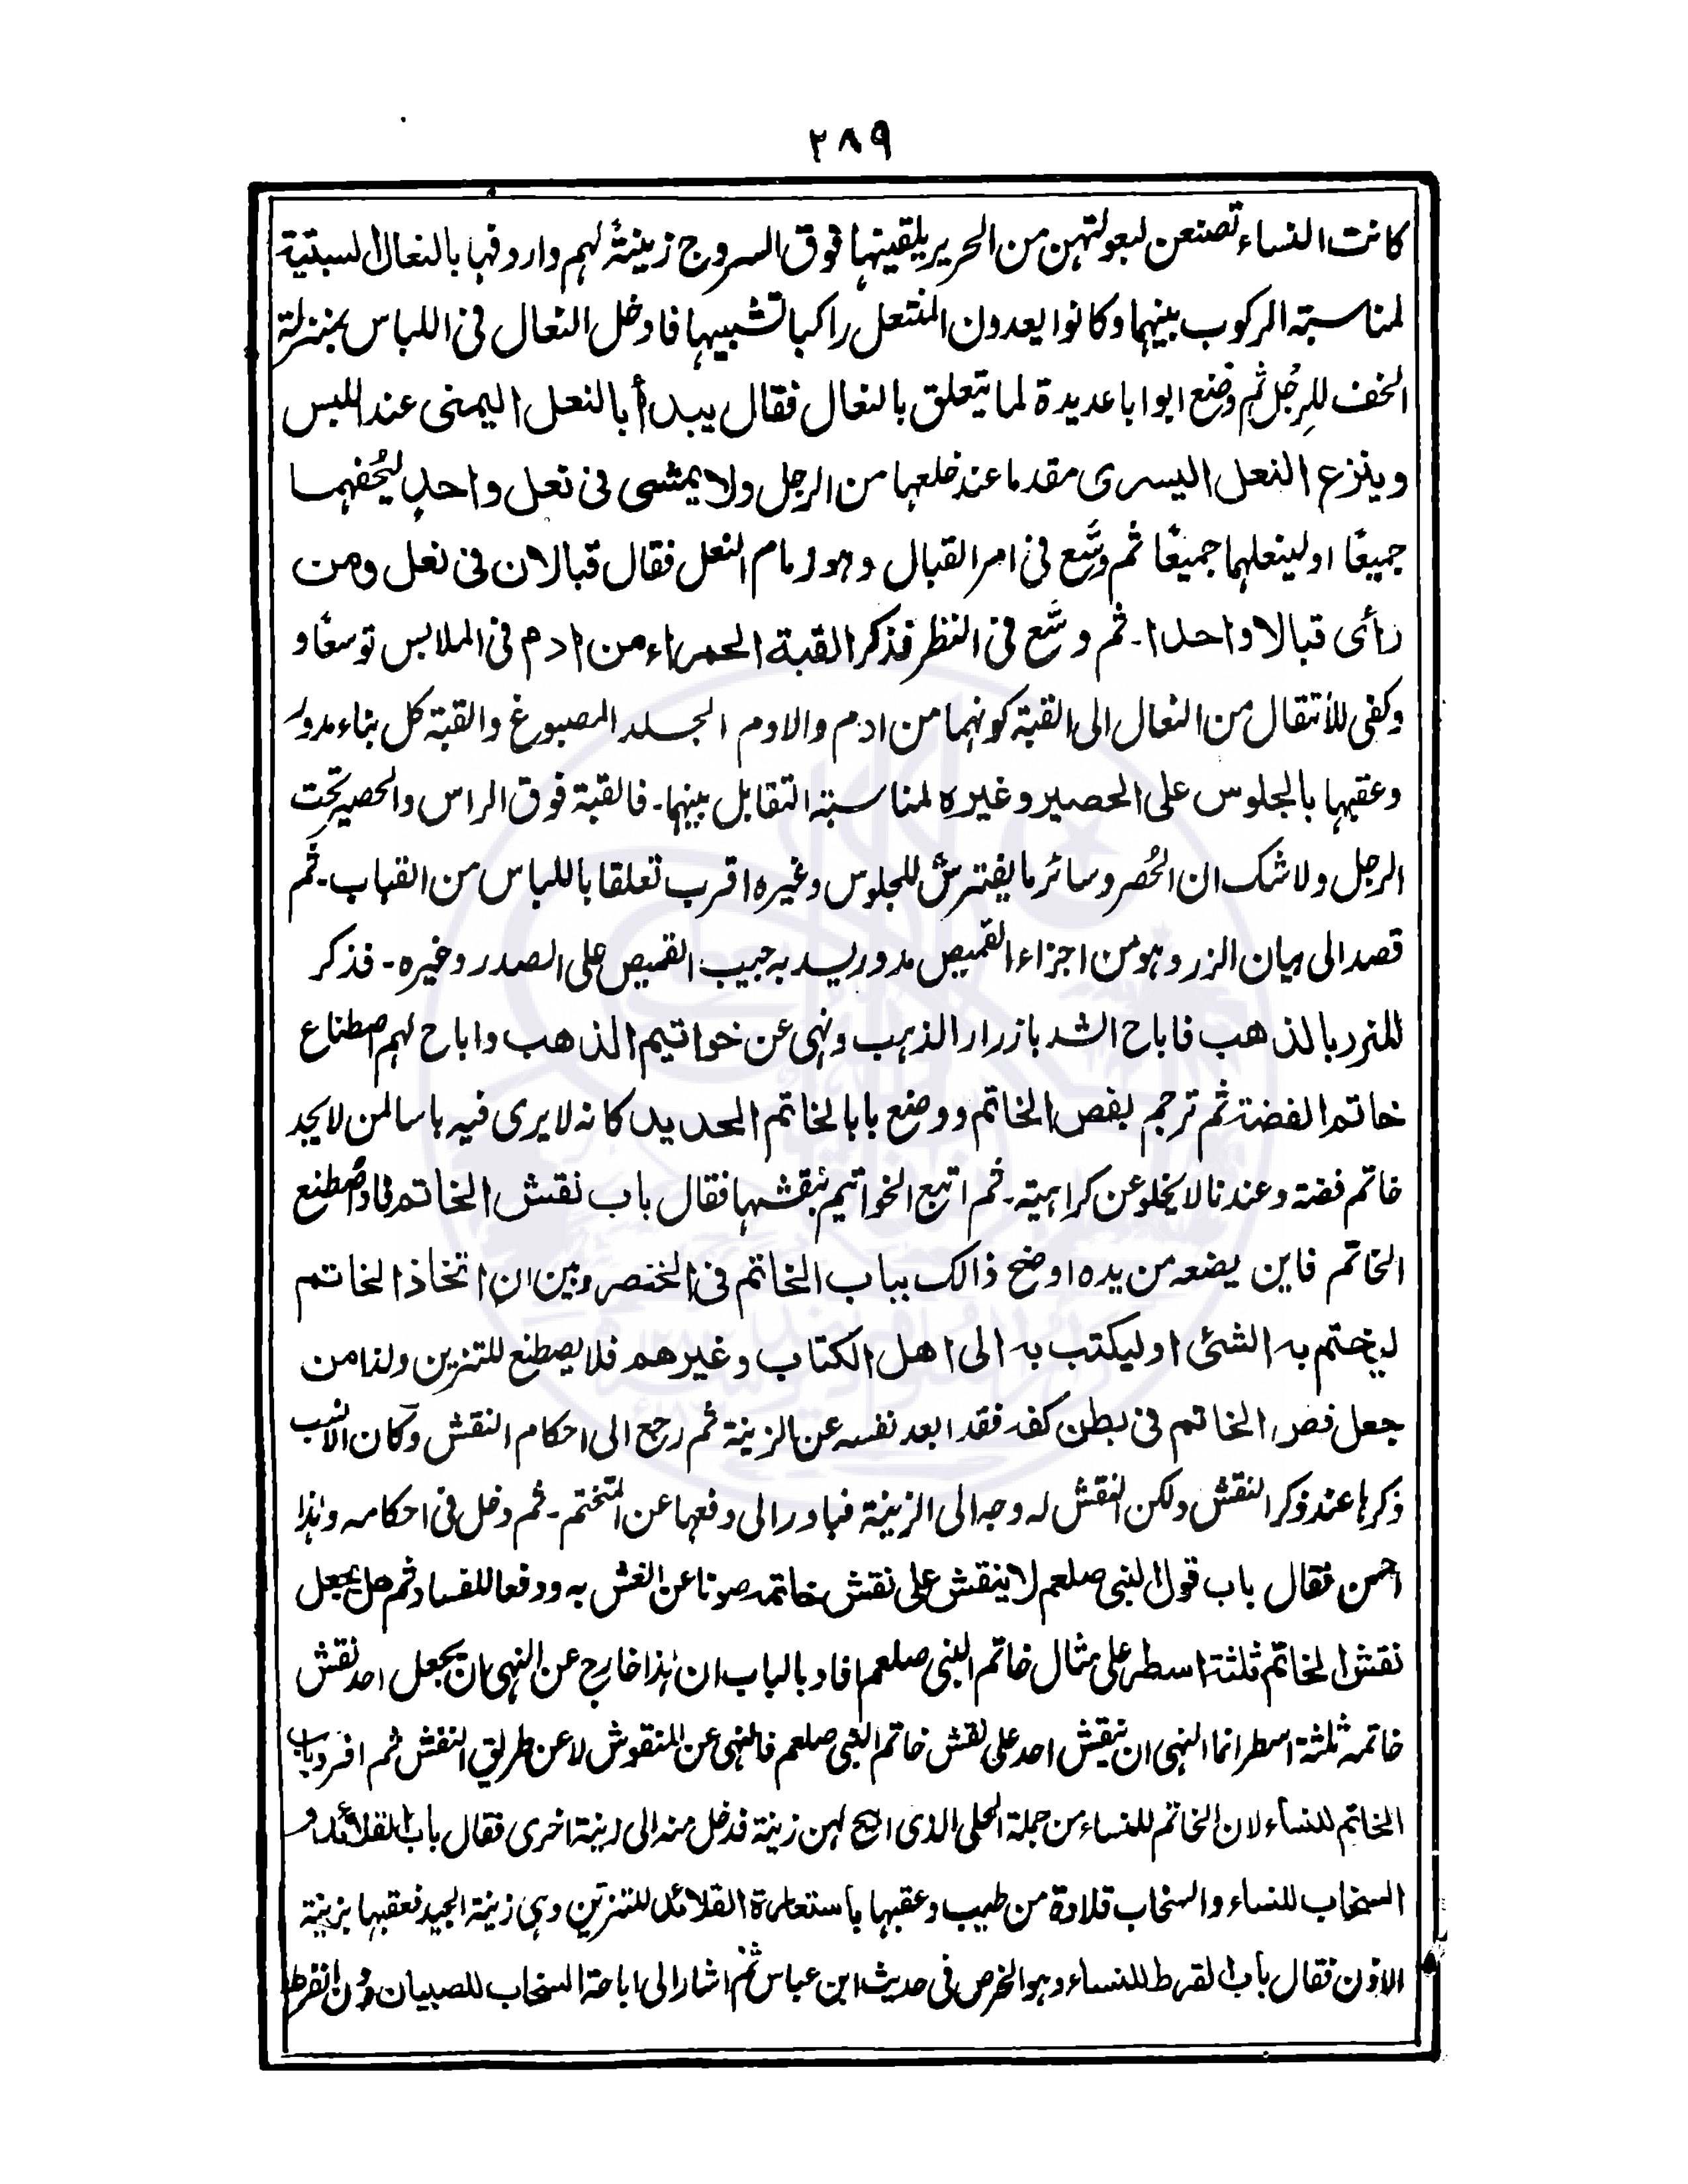 ٢٨٩
كانت النساء تصنعن لبعولتهن من الحرير يلقينها فوق السروج زينةً لهم واردفها بالنعال السبتية
لمناسبة الركوب بينهما وكانوا يعدون المنتعل راكبا تشبيها فادخل النعال فى اللباس بمنزلة
الخف للرِجُل ثم وضع ابوابا عديدة لما يتعلق بالنعال فقال يبدأ بالنعل اليمنى عند اللبس
وينزع النعل اليسرى مقدما عند خلعها من الرجل ولا يمشى فى نعل واحدٍ ليُحفهما
جميعًا اولينعلهما جميعًا ثم وسَّع فى امر القبال وهو زمام النعل فقال قبالان فى نعل ومن
رأى قبالا واحدا۔ ثم وسَّع فى النظر فذكر القبة الحمراء من ادم فى الملابس توسعًا و
وكفى للانتقال من النعال الى القبة كونهما من ادم والادم الجلد المصبوغ والقبة كل بناء مدور
وعقبها بالجلوس على الحصير وغيره لمناسبة التقابل بينهما۔ فالقبة فوق الراس والحصير تحت
الرجل ولا شك ان الحُصر وسائر ما يفترش للجلوس وغيره اقرب تعلقا باللباس من القباب۔ ثم
قصد الى بيان الزر وهو من اجزاء القميص مدور يسد به جيب القميص على الصدر وغيره۔ فذكر
للمزرر بالذهب فاباح الشد بازرار الذهب ونهى عن خواتيم الذهب واباح لهم اصطناع
خاتم الفضة ثم ترجم بفص الخاتم ووضع بابا لخاتم الحديد كانه لا يرى فيه باسا لمن لا يجد
خاتم فضة وعندنا لا يخلو عن كراهية۔ ثم اتبع الخواتيم بنقشها فقال باب نقش الخاتم فاذا صطنع
الخاتم فاين يضعه من يده اوضح ذالك بباب الخاتم فى الخنصر وبين ان اتخاذ الخاتم
ليختم به الشئ اوليكتب به الى اهل الكتاب وغيرهم فلا يصطنع للتزين ولذا من
جعل فص الخاتم فى بطن كفه فقد ابعد نفسه عن الزينة ثم رجع الى احكام النقش وكان الانسب
ذكرها عند ذكر النقش ولكن النقش له وجه الى الزينة فبادر الى دفعها عن المتختم۔ ثم دخل فى احكامه وهذا
احسن فقال باب قول النبى صلعم لا ينقش على نقش خاتمه صونا عن الغش به ودفعا للفساد ثم هل يجعل
نقش الخاتم ثلثة اسطر على مثال خاتم النبى صلعم افاد بالباب ان هذا خارج عن النهى ان يجعل احد نقش
خاتمه ثلثة اسطر انما النهى ان ينقش احد على نقش خاتم النبى صلعم فالنهى عن المنقوش لا عن طريق النقش ثم افرد باب
الخاتم للنساء لان الخاتم للنساء من جملة الحلى الذى ابيح لهن زينة فدخل منه الى زينة اخرى فقال باب القلائد و
السخاب للنساء والسخاب قلادة من طيب وعقبها باستعارة القلائد للتزين وهى زينة الجيد فعقبها بزينة
الاذن فقال باب القرط للنساء وهو الخرص فى حديث ابن عباس ثم اشار الى اباحة السخاب للصبيان دون القرط